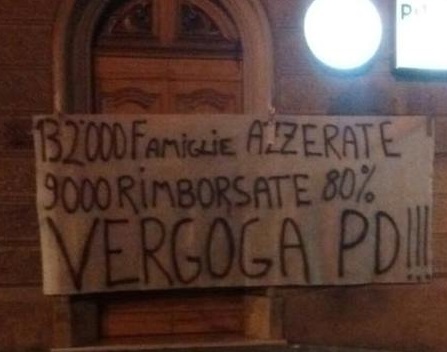 132'000 FAMIGLIE AZZERATE
9000 RIMBORSATE 80%
VERGOGA PD!!!